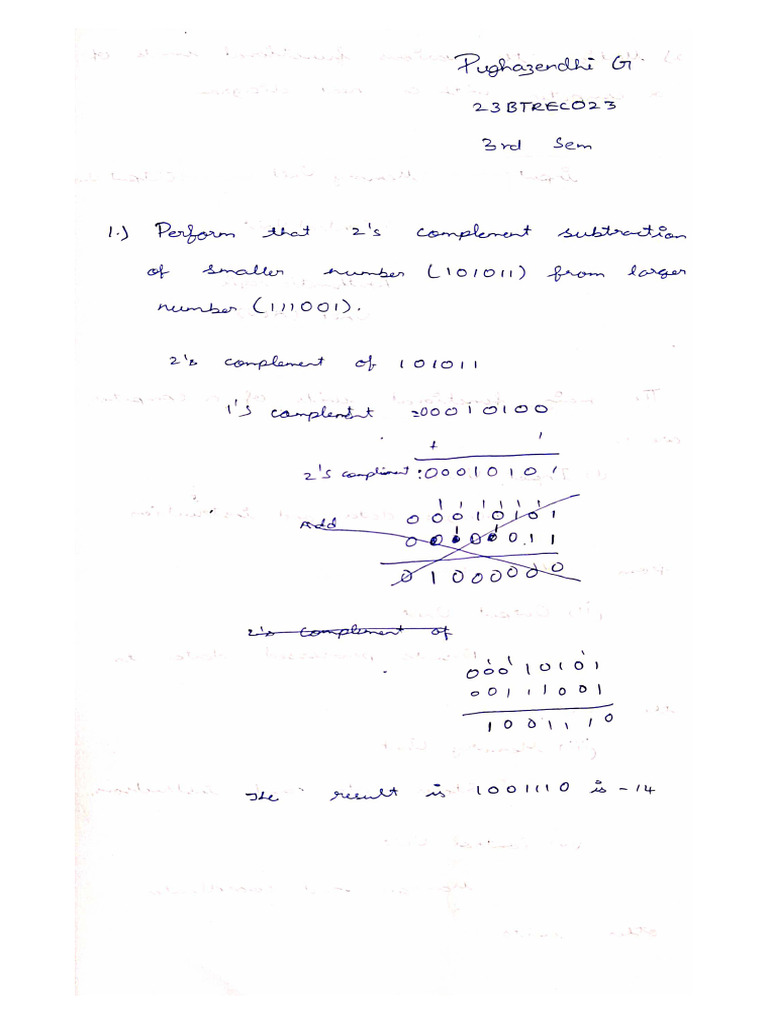 Pughazendhi G.
23BTREC023
3rd Sem
1.) Perform that 2's complement subtraction
of smaller number (101011) from larger
number (111001).
2's complement of 101011
1's complement :00010100
+ 1
2's compliment :00010101
1 1 1 1 1 1
Add 0 0 0 1 0 1 0 1
0 1 0 0 0 0 0 0
2's complement of
00010101
00111001
1001110
The result is 1001110 is -14